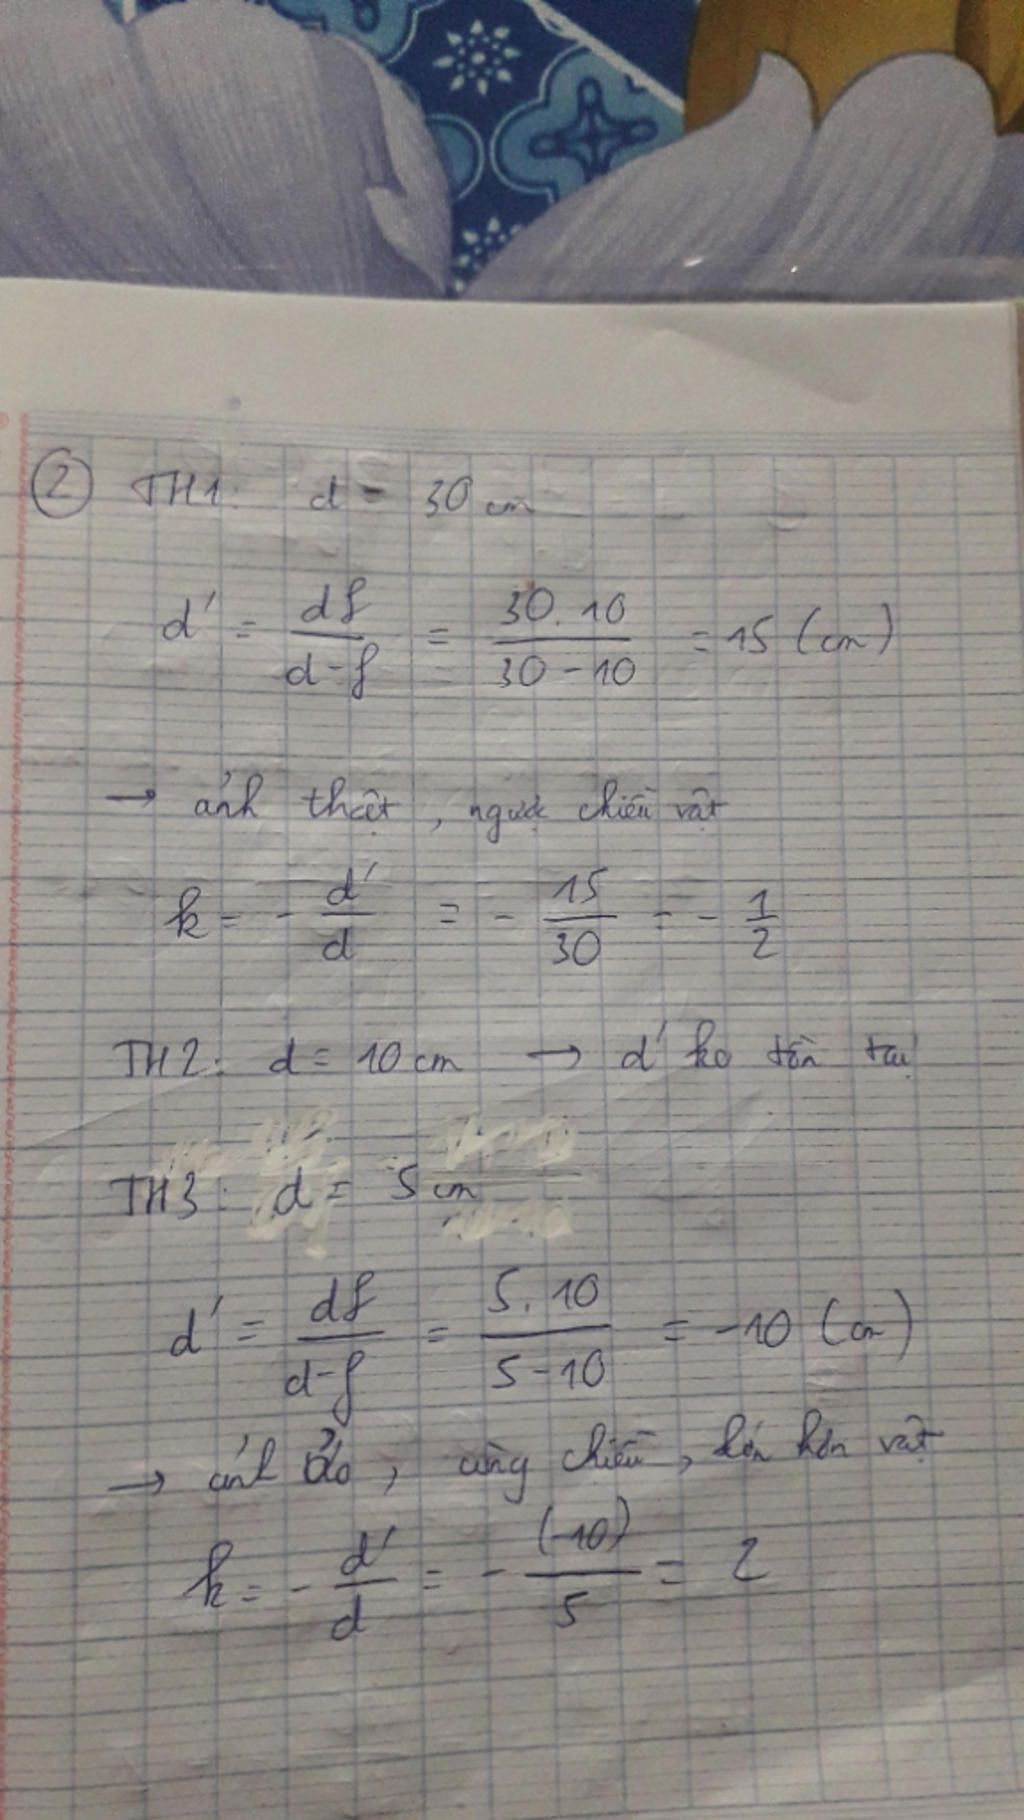 ② TH1: d = 30 cm
d' = df / d-f = 30.10 / 30-10 = 15 (cm)
→ ảnh thật, ngược chiều vật
k = - d' / d = - 15 / 30 = - 1 / 2
TH2: d = 10 cm → d' ko tồn tại
TH3: d = 5 cm
d' = df / d-f = 5.10 / 5-10 = -10 (cm)
→ ảnh ảo, cùng chiều, lớn hơn vật
k = - d' / d = - (-10) / 5 = 2